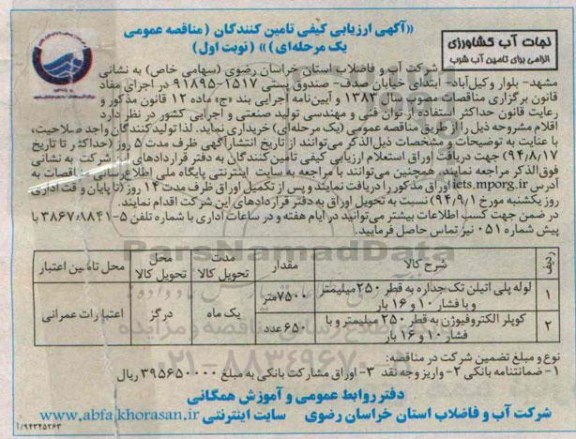 «آگهی ارزیابی کیفی تامین کنندگان (مناقصه عمومی
یک مرحله‌ای)» (نوبت اول)
نجات آب کشاورزی
الزامی برای تامین آب شرب
شرکت آب و فاضلاب استان خراسان رضوی (سهامی خاص) به نشانی
مشهد- بلوار وکیل‌آباد- ابتدای خیابان صدف- صندوق پستی ۱۵۱۷-۹۱۸۹۵ در اجرای مفاد
قانون برگزاری مناقصات مصوب سال ۱۳۸۳ و آیین‌نامه اجرایی بند «ج» ماده ۱۲ قانون مذکور و
رعایت قانون حداکثر استفاده از توان فنی و مهندسی تولید صنعتی و اجرایی کشور در نظر دارد
اقلام مشروحه ذیل را از طریق مناقصه عمومی (یک مرحله‌ای) خریداری نماید. لذا تولیدکنندگان واجد صلاحیت،
با عنایت به توضیحات و مشخصات ذیل‌الذکر می‌توانند از تاریخ انتشار آگهی ظرف مدت ۵ روز (حداکثر تا تاریخ
۹۴/۸/۱۷) جهت دریافت اوراق استعلام ارزیابی کیفی تامین‌کنندگان به دفتر قراردادهای این شرکت به نشانی
فوق‌الذکر مراجعه نمایند، همچنین می‌توانند با مراجعه به سایت اینترنتی پایگاه ملی اطلاع‌رسانی مناقصات به
آدرس iets.mporg.ir اوراق مذکور را دریافت نمایند و پس از تکمیل اوراق ظرف مدت ۱۴ روز (تا پایان وقت اداری
روز یکشنبه مورخ ۹۴/۹/۱) نسبت به تحویل اوراق به دفتر قراردادهای این شرکت اقدام نمایند.
در ضمن جهت کسب اطلاعات بیشتر می‌توانید در ایام هفته و در ساعات اداری با شماره تلفن ۵-۳۸۶۷۰۸۸۴۱ با
پیش شماره ۰۵۱ نیز تماس حاصل فرمایید.
ParsNamadData
ردیف شرح کالا مقدار مدت تحویل کالا محل تحویل کالا محل تامین اعتبار
۱ لوله پلی اتیلن تک جداره به قطر ۲۵۰ میلیمتر و با فشار ۱۰ و ۱۶ بار ۷۵۰۰ متر یک ماه درگز اعتبارات عمرانی
۲ کوپلر الکتروفیوژن به قطر ۲۵۰ میلیمتر و با فشار ۱۰ و ۱۶ بار ۶۵۰ عدد
نوع و مبلغ تضمین شرکت در مناقصه:
۱- ضمانتنامه بانکی ۲- واریز وجه نقد ۳- اوراق مشارکت بانکی به مبلغ ۳۹۵۶۵۰۰۰۰ ریال
دفتر روابط عمومی و آموزش همگانی
شرکت آب و فاضلاب استان خراسان رضوی سایت اینترنتی www.abfa.khorasan.ir